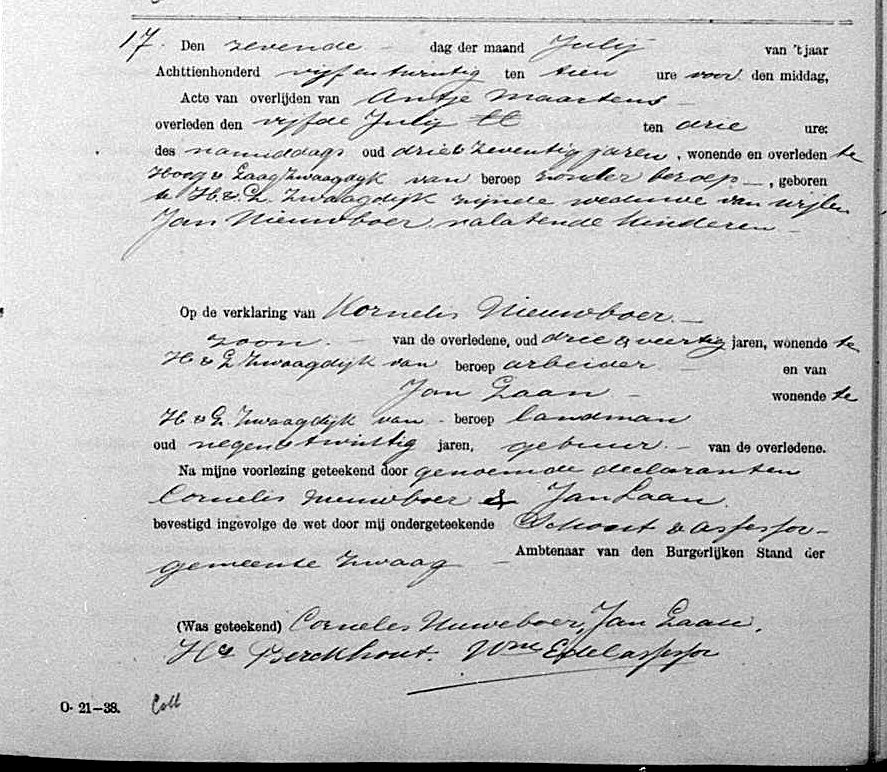 17. Den zevende - dag der maand Julij van 't jaar
Achttienhonderd vijf en twintig ten tien ure voor den middag,
Acte van overlijden van Antje Maartens -
overleden den vijfde Julij ten drie ure:
des namiddags oud drie & zeventig jaren, wonende en overleden te
Hoog & Laag Zwaagdyk van beroep zonder beroep -, geboren
te H. & L. Zwaagdijk zijnde weduwe van wijlen
Jan Nieuwboer nalatende kinderen -
Op de verklaring van Kornelis Nieuwboer. -
zoon. - van de overledene, oud drie & veertig jaren, wonende te
H & L Zwaagdijk van beroep arbeider - en van
Jan Laan - wonende te
H & L Zwaagdyk van - beroep landman
oud negen & twintig jaren, gebuur. - van de overledene.
Na mijne voorlezing geteekend door genoemde declaranten
Cornelis Nieuwboer & Jan Laan.
bevestigd ingevolge de wet door mij ondergeteekende Schout & assessor -
Ambtenaar van den Burgerlijken Stand der
gemeente Zwaag -
(Was geteekend) Cornelis Nuweboer, Jan Laan.
Hs Berckhout. Wm Edel assessor
O. 21—38. Coll